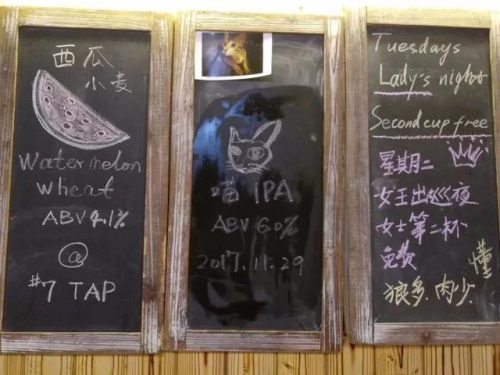 西瓜
小麦
Watermelon
wheat
ABV 4.1%
@
#7 TAP
喵 IPA
ABV 6.0%
2017.11.29
Tuesdays
Lady's night
Second cup free
星期二
女王出巡夜
女士第二杯
免费
懂
狼多.肉少.